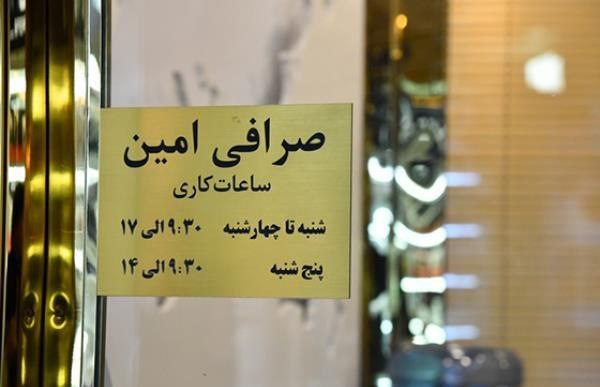 صرافی امین
ساعات کاری
شنبه تا چهارشنبه ۹:۳۰ الی ۱۷
پنج شنبه ۹:۳۰ الی ۱۴